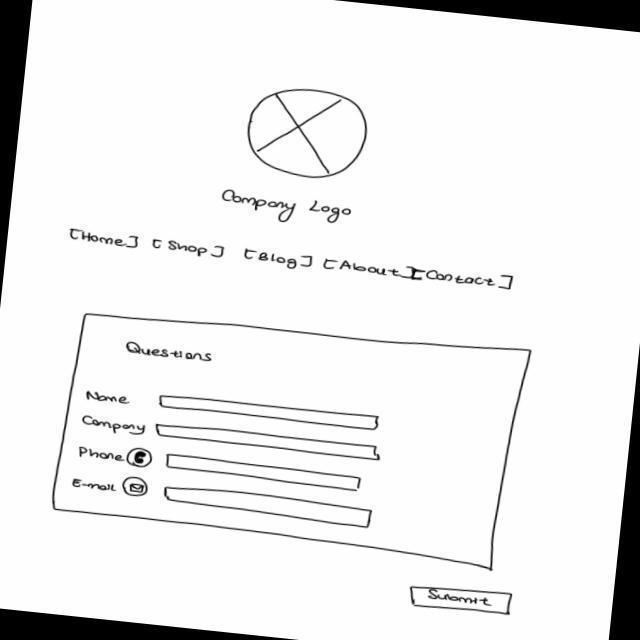 Company Logo
[Home] [Shop] [Blog] [About] [Contact]
Questions
Name
Company
Phone
E-mail
Submit